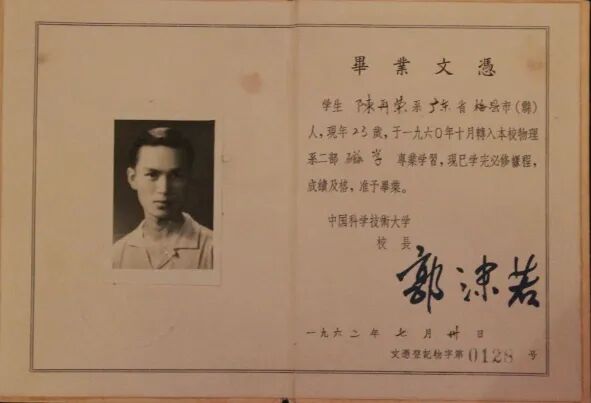 畢業文憑
学生 陳再荣 系 廣东 省 梅县 市(縣)
人,現年 23 歲,于一九六〇年十月轉入本校物理
系二部 磁学 專業学習,現已学完必修課程,
成績及格,准予畢業。
中国科学技術大学
校長
郭沫若
一九六二年 七月 卅日
文憑登記物字第 0128 号